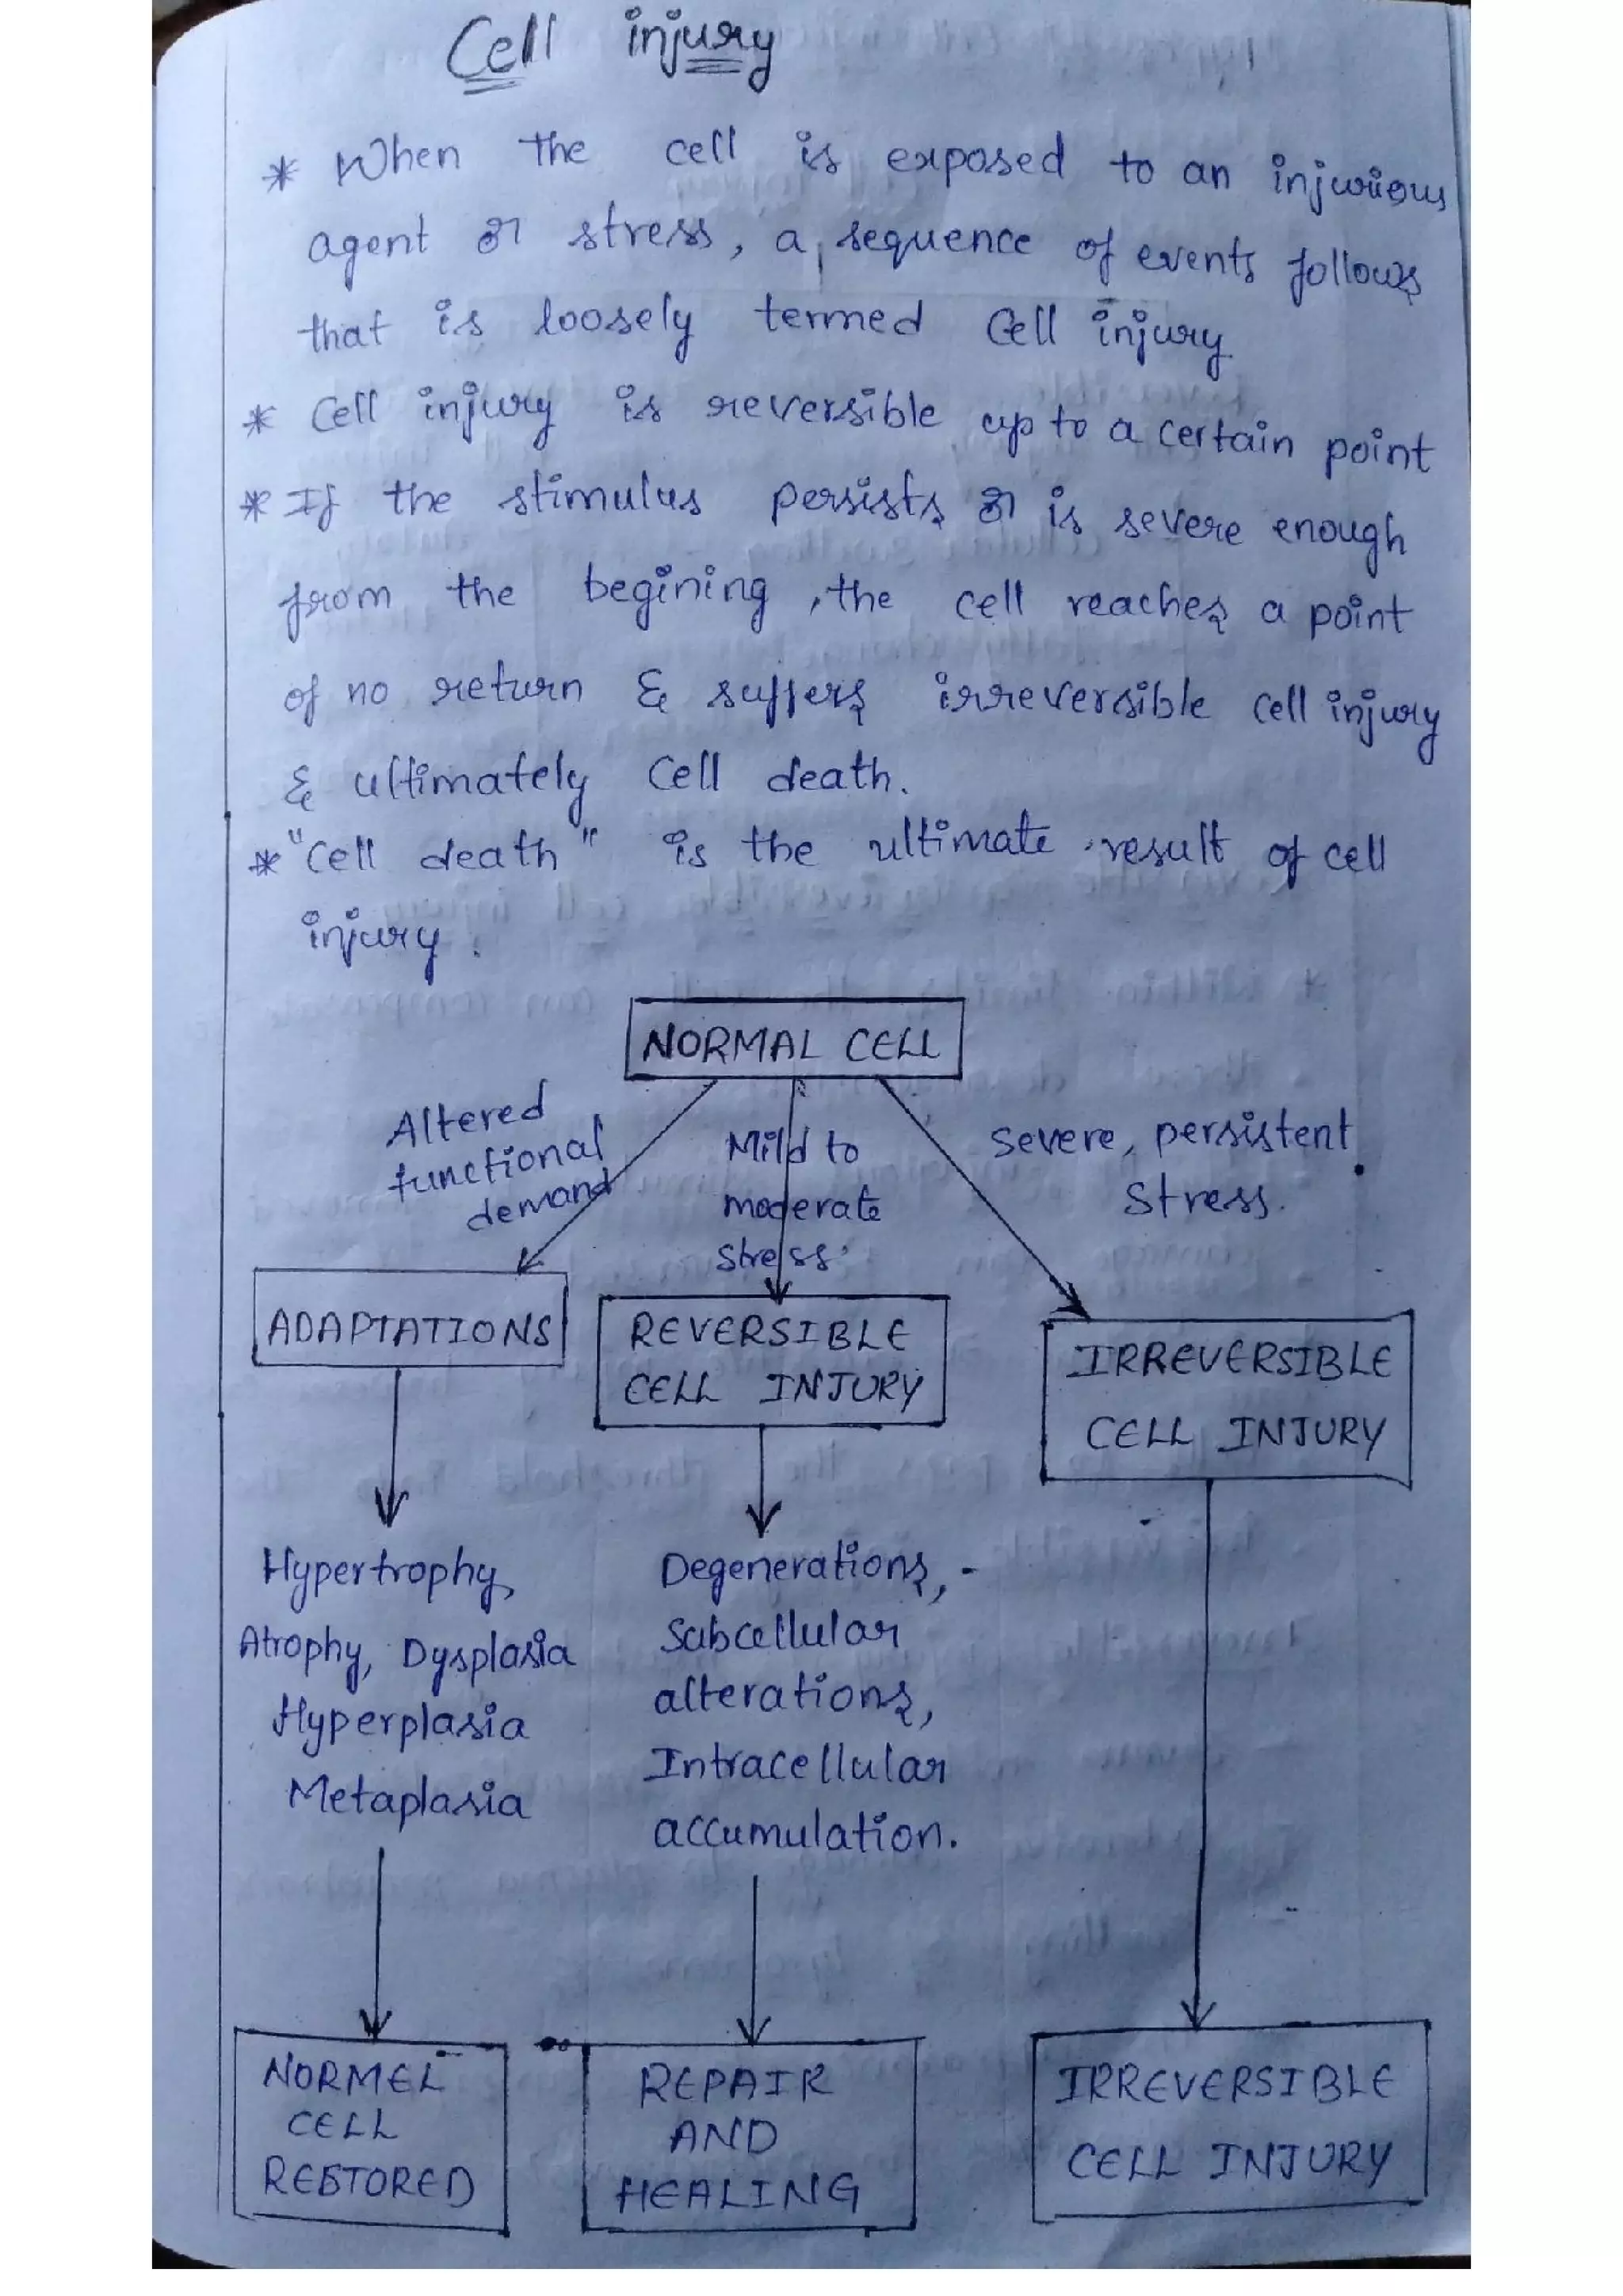 Cell injury
* When the cell is exposed to an injurious
agent or stress, a sequence of events follows
that is loosely termed Cell injury.
* Cell injury is reversible up to a certain point
* If the stimulus persists or is severe enough
from the begining, the cell reaches a point
of no return & suffers irreversible cell injury
& ultimately Cell death.
* "Cell death" is the ultimate result of cell
injury.
NORMAL CELL
Altered
functional
demand
Mild to
moderate
stress.
Severe, persistent
Stress.
ADAPTATIONS
REVERSIBLE
CELL INJURY
IRREVERSIBLE
CELL INJURY
Hypertrophy,
Atrophy, Dysplasia
Hyperplasia
Metaplasia
Degenerations, -
Subcellular
alterations,
Intracellular
accumulation.
NORMEL
CELL
RESTORED
REPAIR
AND
HEALING
IRREVERSIBLE
CELL INJURY